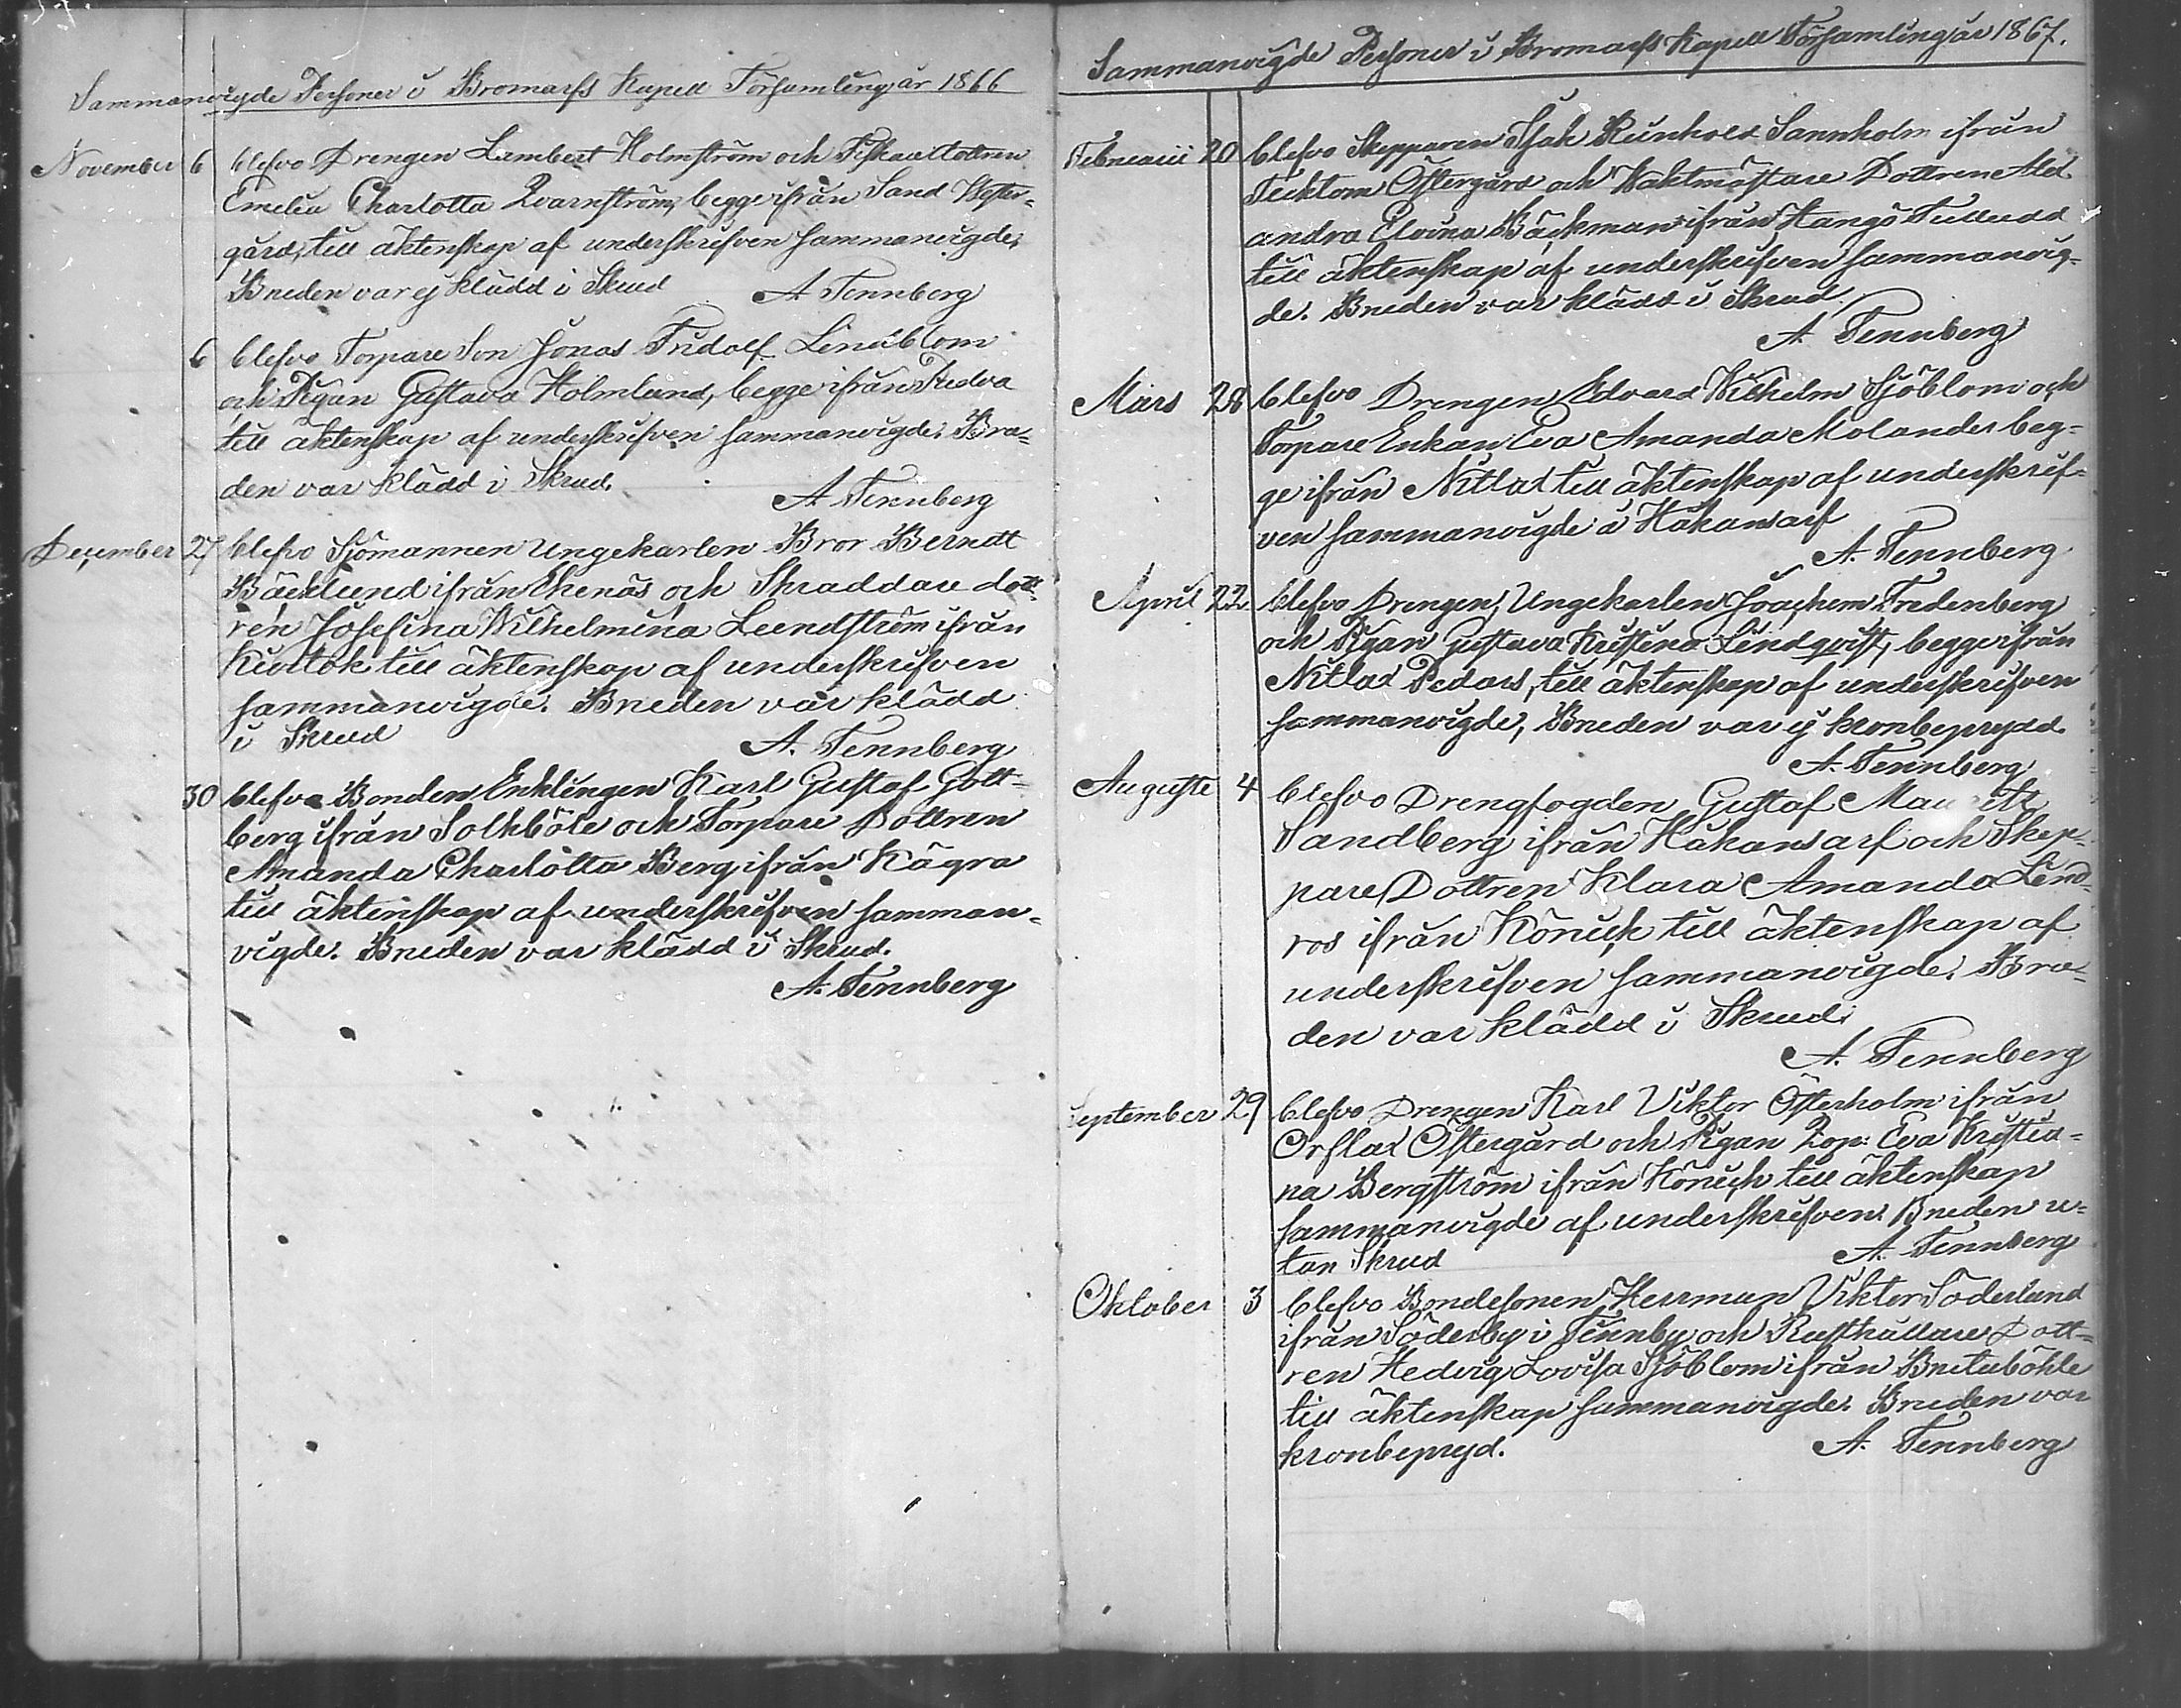 Sammanvigde Personer i Bromarfs Kapell Församling år 1866
November 6 blefvo Drengen Lambert Holmström och Fiskaredottren
Emelia Charlotta Qvarnström, begge ifrån Sand Wester-
gård, till äktenskap af underskrifven sammanvigde;
Bruden var ej klädd i Skrud A Tennberg
6 blefvo Torpare Son Jonas Fridolf Lindblom
och Pigan Gustava Holmlund, begge ifrån Kedva
till äktenskap af underskrifven sammanvigde. Bru-
den var klädd i Skrud.
A Tennberg
December 27 blefvo Sjömannen Ungekarlen Bror Berndt
Bäcklund ifrån Ekenäs och Skraddare dott-
ren Josefina Wilhelmina Lundström ifrån
till äktenskap af underskrifven
sammanvigde. Bruden var klädd
i Skrud
A. Tennberg
30 blefvo Bonden Enklingen Karl Gustaf Gott-
berg ifrån Solkböle och Torpare Dottren
Amanda Charlotta Berg ifrån Kägra
till äktenskap af underskrifven samman-
vigde. Bruden var klädd i Skrud.
A. Tennberg
Sammanvigde Personer i Bromarfs Kapell Församling år 1867.
Februarii 20 blefvo Skepparen Isak Reinhold Sannholm ifrån
Tecktom Östergård och Waktmästare Dottren Alex-
andra Elvina Bäckman ifrån Hangö Tulludd
till äktenskap af underskrifven sammanvig-
de. Bruden var klädd i Skrud.
A. Tennberg
Mars 28 blefvo Drengen Edvard Wilhelm Sjöblom och
Torpare Enkan Eva Amanda Molander beg-
ge ifrån Nitlax till äktenskap af underskrif-
ven sammanvigde å Håkansarf
A. Tennberg
April 22 blefvo Drengen, Ungekarlen Joachim Fredenberg
och Pigan Gustava Kristina Lindqvist, begge ifrån
Nitlax Pedars, till äktenskap af underskrifven
sammanvigde, Bruden var ej kronbeprydd.
A. Tennberg
Auguste 4 blefvo Drengfogden Gustaf
Sandberg ifrån Håkansarf och Skep-
pare Dottren Klara Amanda Lind-
ros ifrån Könick till äktenskap af
underskrifven sammanvigde. Bru-
den var klädd i Skrud.
A. Tennberg
September 29 blefvo Drengen Karl Viktor Österholm ifrån
Orslax Östergård och Pigan Eva Kristi-
na Bergström ifrån Könick till äktenskap
sammanvigde af underskrifven. Bruden u-
tan Skrud
A. Tennberg
Oktober 3 blefvo Bondesonen Herrman Viktor Söderlund
ifrån Söderby i Tennby och Rusthållare Dott-
ren Hedvig Lovisa Sjöblom ifrån
till äktenskap sammanvigde. Bruden var
kronbepryd. A. Tennberg